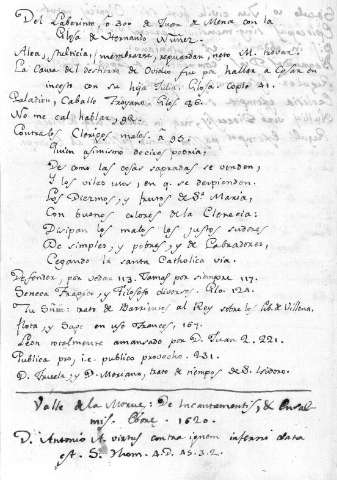 Del Laberinto, ó 300 de Juan de Mena con la
Glosa de Hernando Nuñez.
Alea, stulticia, membrarse, reguardan, neto M. trovar.
La causa del destierro de Ovidio fue pr hallar a Cesar en
incesto con su hija Julia. Glosa. copla 41.
Paladion, Caballo Troyano. Glos. 46.
No me cal hablar, 92.
Contra los Clerigos malos. a 95.
Quien asimismo deciros podria,
De como las cosas sagradas se venden,
Y los viles usos, en q. se despienden
Los Diezmos, y frutos de Sta Maria,
Con buenos colores de la Clerecia:
Disipan los malos los justos sudores
De simples, y pobres, y de Labradores,
Cegando la santa Catholica via.
Defender, por vedar 113. Jamas por siempre 117.
Seneca Tragico, y Filosofo diversos. Glo. 124.
trato de Barrientos al Rey sobre los lib. de Villena.
flota, y Sage en uso Frances, 167.
Leon totalmente amansado por D. Juan 2. 221.
Publica pro, i.e. publico provecho. 231.
D. Favela, y D. Mariana, trato de tiempos de S. Isidoro.
Valle de la Moura: De Incantamentis, & Ensal
mis. Eborae. 1620.
D. Antonio A. virtus contra ignem inferni data
est. S. Thom. 4. D. 45. 3. 2.